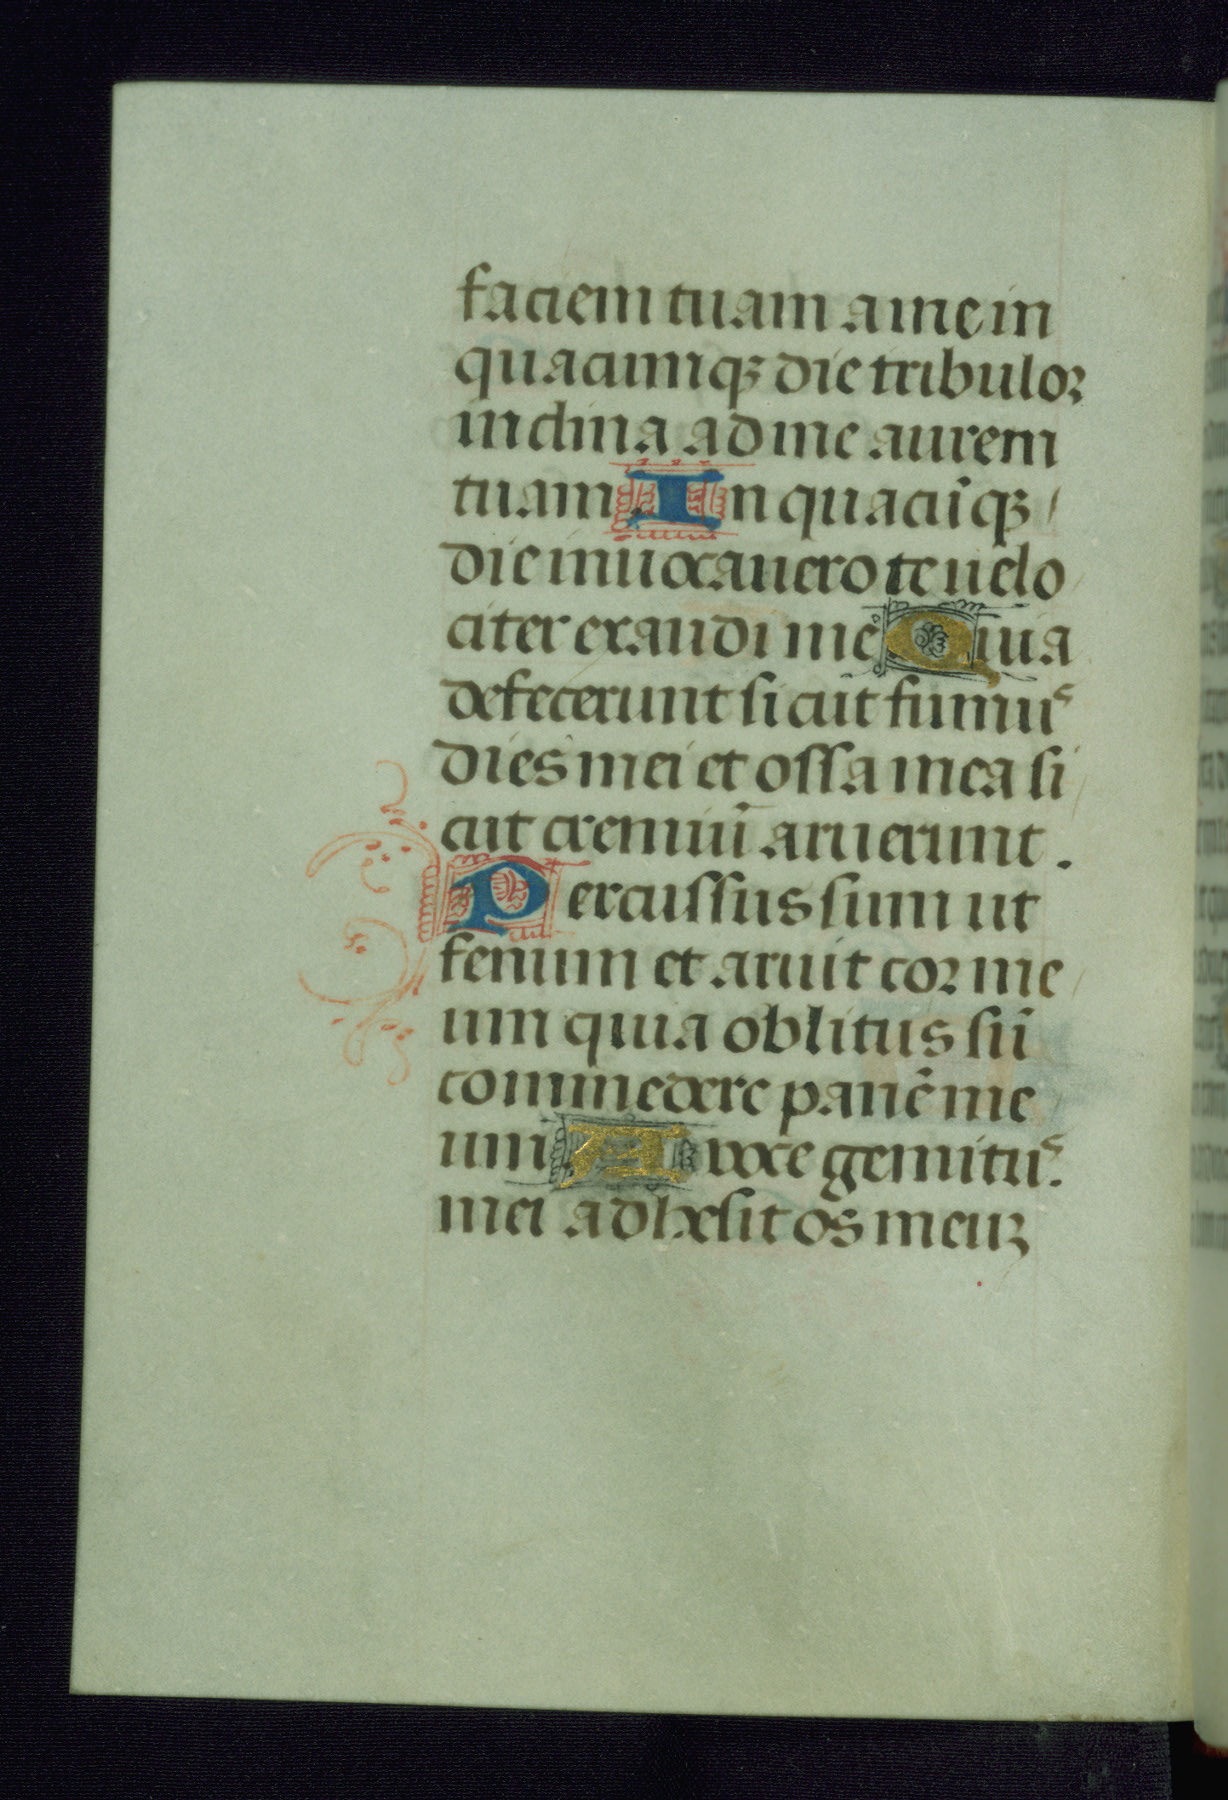 faciem tuam a me in
quacumqꝫ die tribuloꝛ
inclina ad me aurem
tuam In quacūqꝫ /
die inuocauero te uelo
citer exaudi me Quia
defecerunt sicut fumus
dies mei et ossa mea si
cut cremiū aruerunt.
Percussus sum ut
fenum et aruit coꝛ me
um quia oblitus sū
commedere panē me
um A uoce gemitus.
mei adhesit os meuꝫ